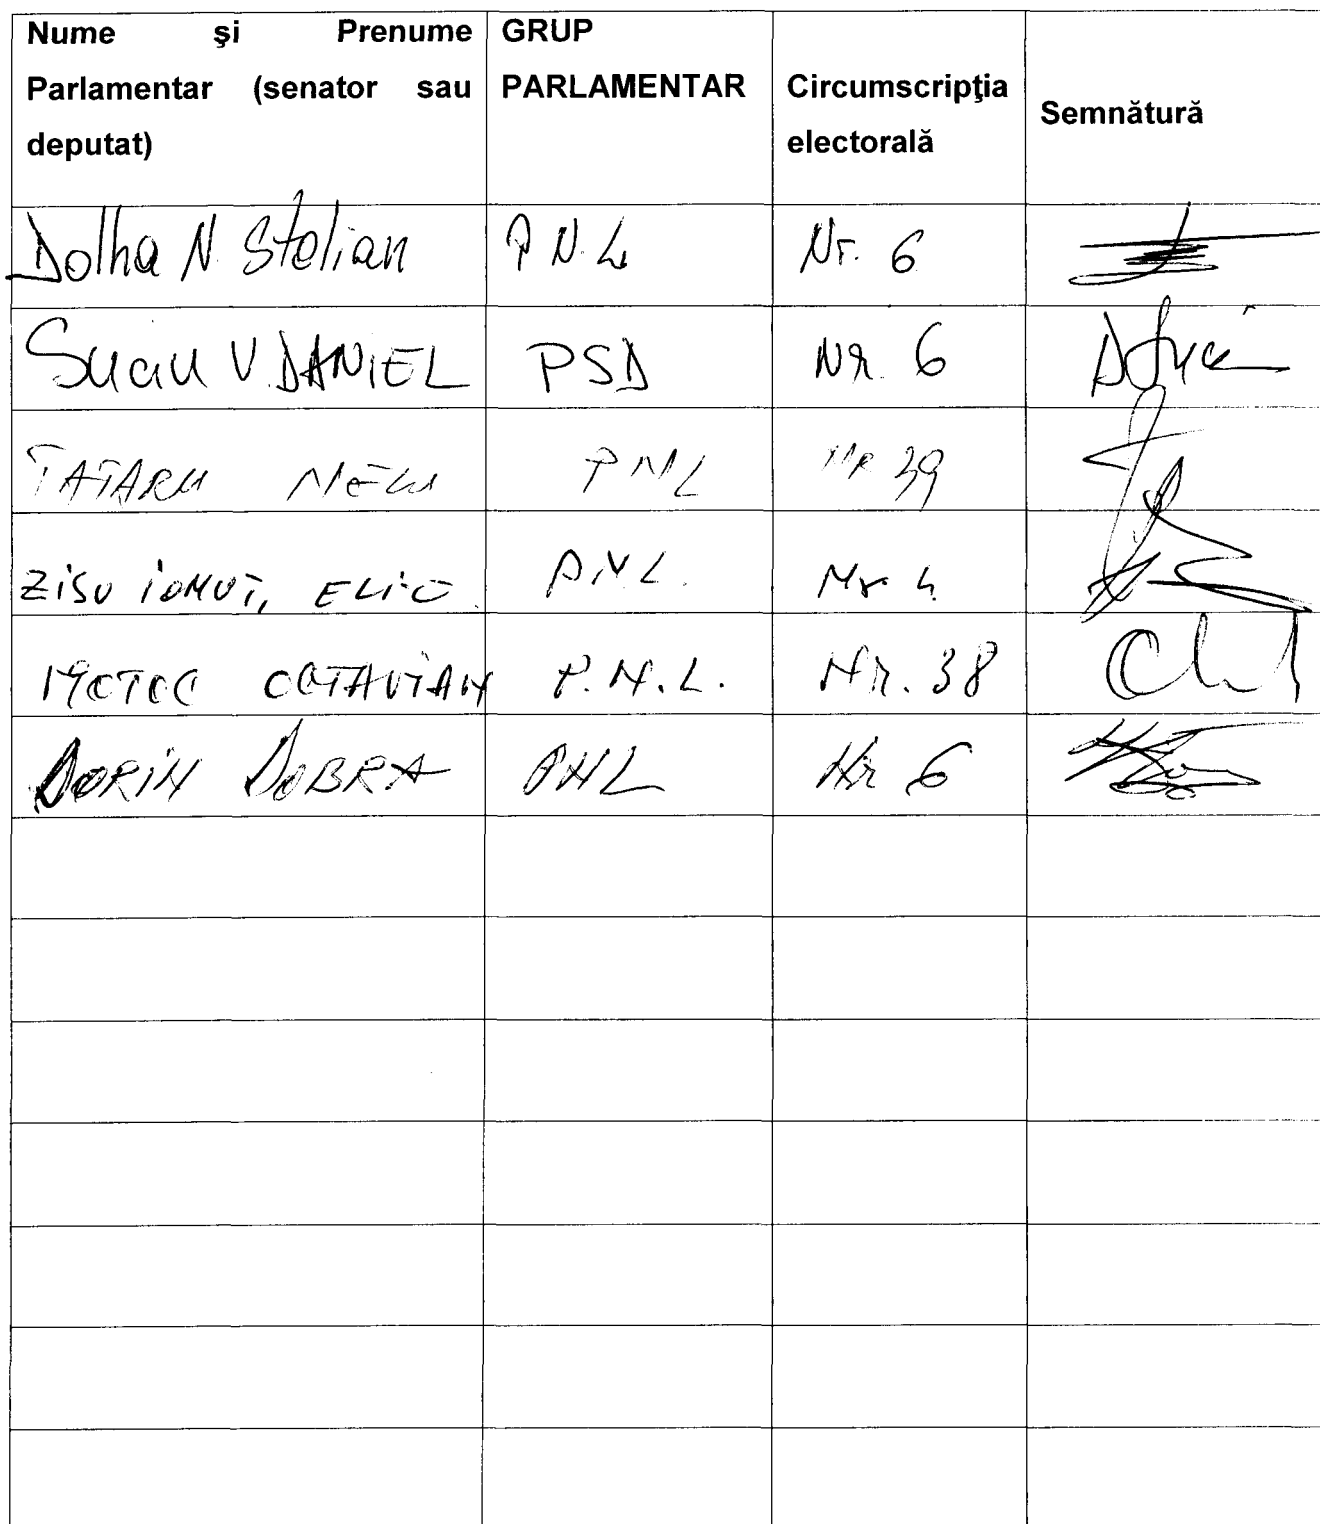 Nume și Prenume Parlamentar (senator sau deputat)
GRUP PARLAMENTAR
Circumscripţia electorală
Semnătură
Dolha N. Stelian P.N.L Nr. 6
Suciu V. DANIEL PSD NR. 6
TATARU NELU PNL NR 39
ZISU IONUȚ, ELIE. PNL. Nr 4
MOTOC OCTAVIAN P.N.L. NR. 38
DORIN DOBRA PNL Nr 6